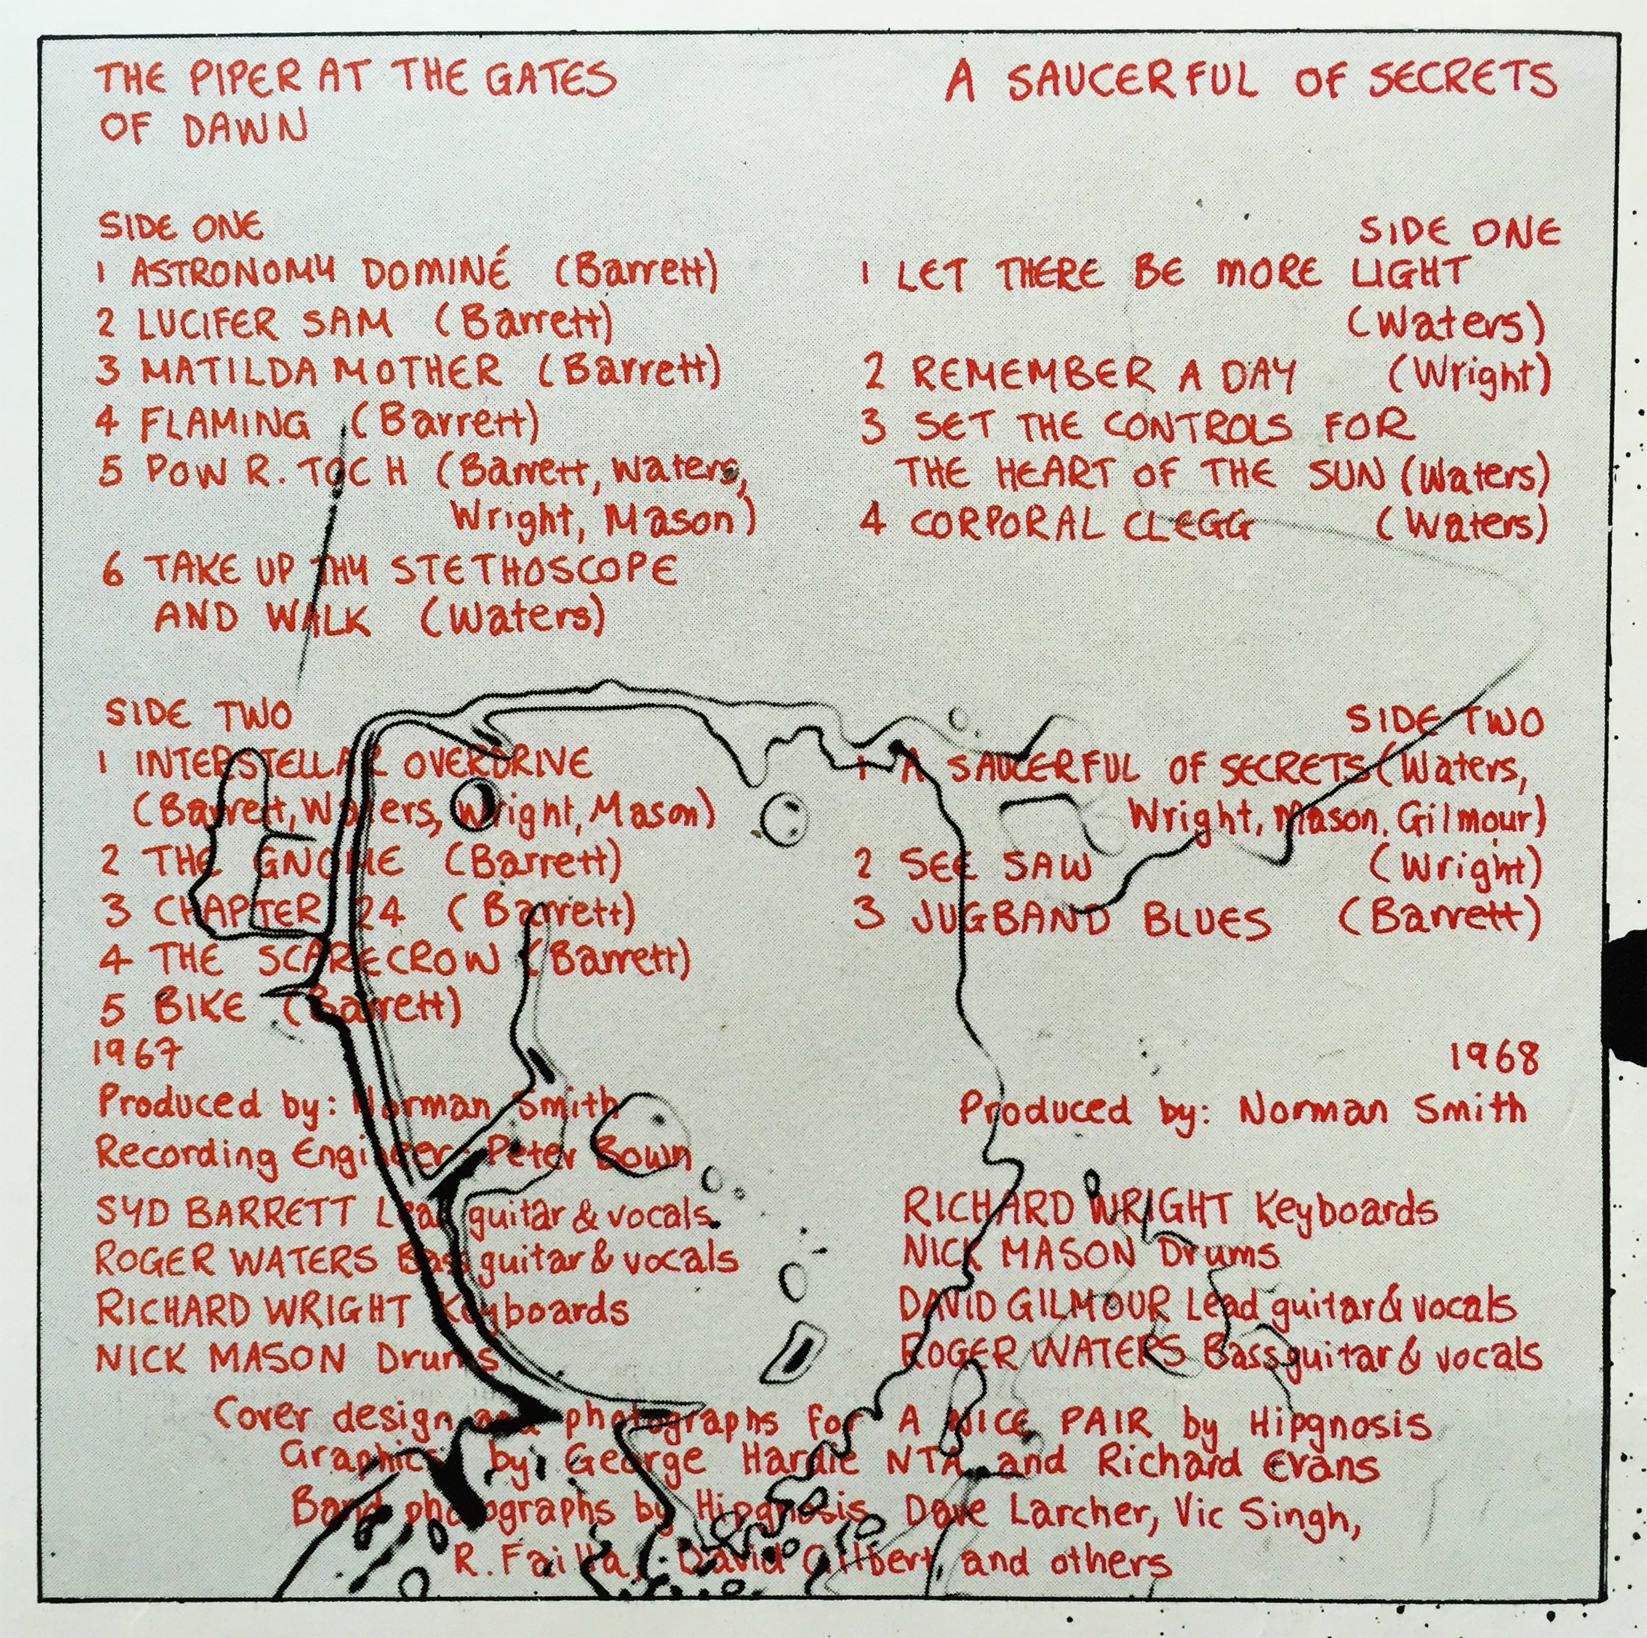 THE PIPER AT THE GATES
OF DAWN
SIDE ONE
1 ASTRONOMY DOMINÉ (Barrett)
2 LUCIFER SAM (Barrett)
3 MATILDA MOTHER (Barrett)
4 FLAMING (Barrett)
5 POW R. TOC H (Barrett, Waters,
Wright, Mason)
6 TAKE UP THY STETHOSCOPE
AND WALK (Waters)
SIDE TWO
1 INTERSTELLAR OVERDRIVE
(Barrett, Waters, Wright, Mason)
2 THE GNOME (Barrett)
3 CHAPTER 24 (Barrett)
4 THE SCARECROW (Barrett)
5 BIKE (Barrett)
1967
Produced by: Norman Smith
Recording Engineer: Peter Bown
SYD BARRETT Lead guitar & vocals
ROGER WATERS Bass guitar & vocals
RICHARD WRIGHT Keyboards
NICK MASON Drums
A SAUCERFUL OF SECRETS
SIDE ONE
1 LET THERE BE MORE LIGHT
(Waters)
2 REMEMBER A DAY (Wright)
3 SET THE CONTROLS FOR
THE HEART OF THE SUN (Waters)
4 CORPORAL CLEGG (Waters)
SIDE TWO
1 A SAUCERFUL OF SECRETS (Waters,
Wright, Mason, Gilmour)
2 SEE SAW (Wright)
3 JUGBAND BLUES (Barrett)
1968
Produced by: Norman Smith
RICHARD WRIGHT Keyboards
NICK MASON Drums
DAVID GILMOUR Lead guitar & vocals
ROGER WATERS Bass guitar & vocals
Cover design and photographs for A NICE PAIR by Hipgnosis
Graphics by: George Hardie NTA and Richard Evans
Band photographs by Hipgnosis, Dave Larcher, Vic Singh,
R. Failla, David Gilbert, and others